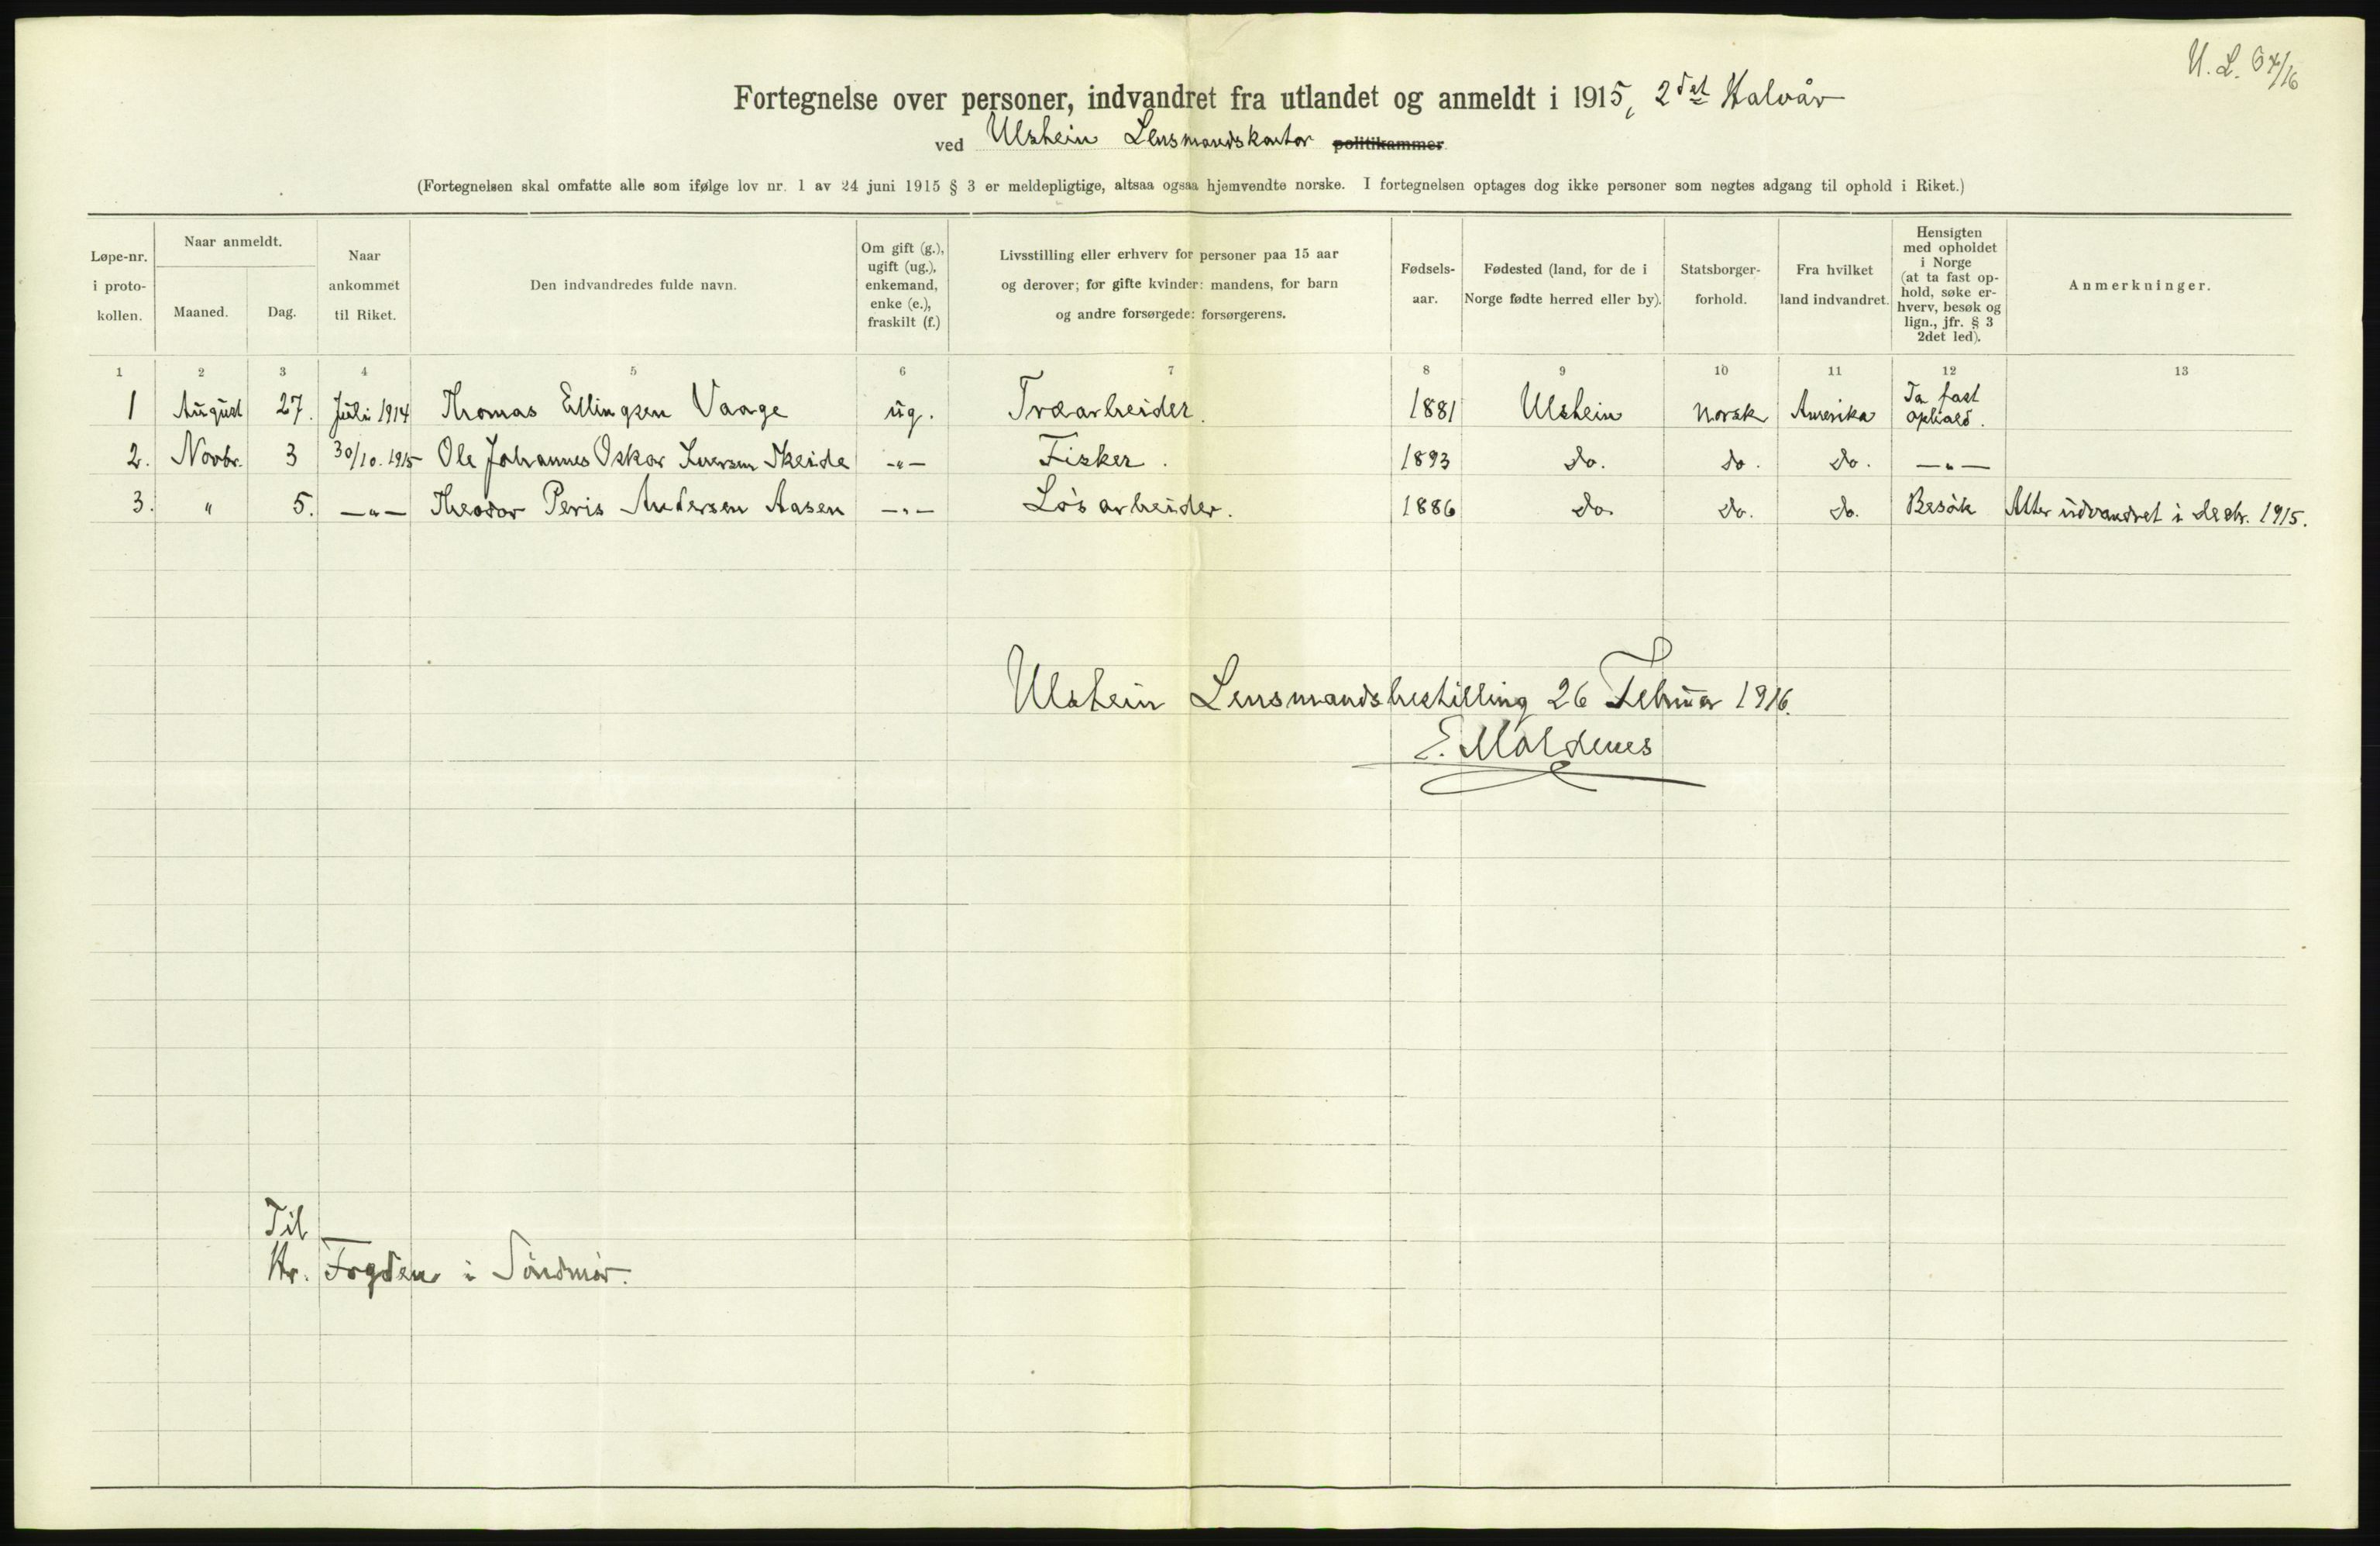 U. L. 64/16
Fortegnelse over personer, indvandret fra utlandet og anmeldt i 1915, 2det Halvår
ved Ulstein Lensmandskontor politikammer.
(Fortegnelsen skal omfatte alle som ifølge lov nr. 1 av 24 juni 1915 § 3 er meldepligtige, altsaa ogsaa hjemvendte norske. I fortegnelsen optages dog ikke personer som negtes adgang til ophold i Riket.)
Løpe-nr. i proto- kollen.
Naar anmeldt.
Maaned. Dag.
Naar ankommet til Riket.
Den indvandredes fulde navn.
Om gift (g.), ugift (ug.), enkemand, enke (e.), fraskilt (f.)
Livsstilling eller erhverv for personer paa 15 aar og derover; for gifte kvinder: mandens, for barn og andre forsørgede: forsørgerens.
Fødsels- aar.
Fødested (land, for de i Norge fødte herred eller by).
Statsborger- forhold.
Fra hvilket land indvandret.
Hensigten med opholdet i Norge (at ta fast op- hold, søke er- hverv, besøk og lign., jfr. § 3 2det led).
Anmerkninger.
1 2 3 4 5 6 7 8 9 10 11 12 13
1 August 27. Juli 1914 Thomas Ellingsen Vaage ug. Træarbeider. 1881 Ulstein Norsk Amerika Ta fast ophold.
2. Novbr. 3 30/10. 1915 Ole Johannes Oskar Iversen Skeide -"- Fisker. 1893 do. do. do. -"-
3. " 5. -"- Theodor Peris Andersen Aasen -"- Løs arbeider. 1886 do. do. do. Besøk Atter udvandret i Decbr. 1915.
Ulstein Lensmandsbestilling 26 Februar 1916.
E. Moldenes
Til
Hr. Fogden i Söndmör.